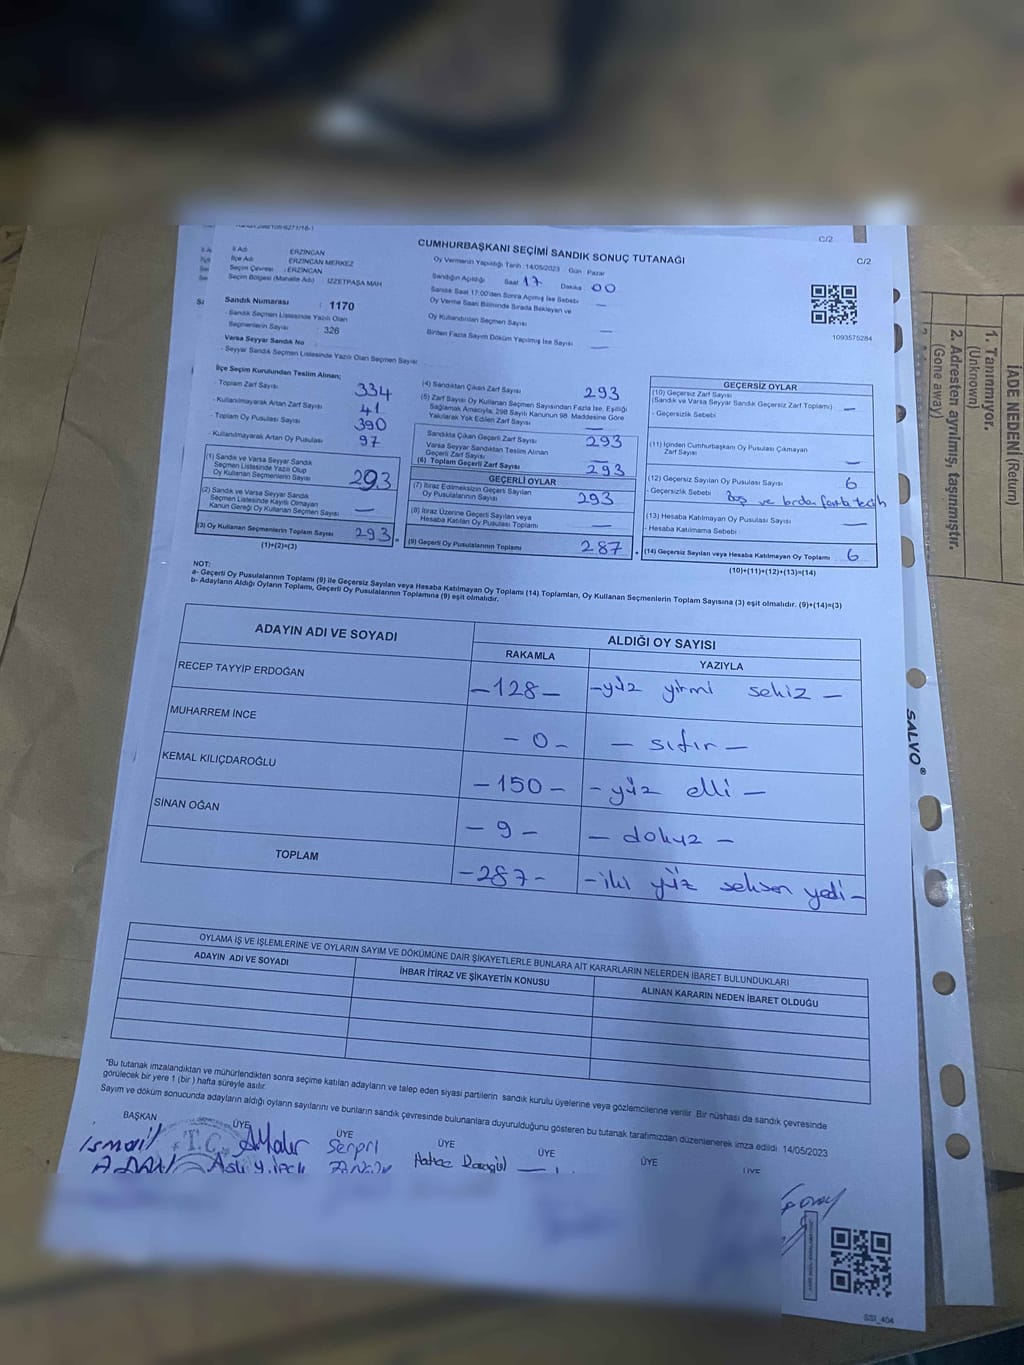 C/2
CUMHURBAŞKANI SEÇİMİ SANDIK SONUÇ TUTANAĞI
C/2
İl Adı : ERZİNCAN
İlçe Adı : ERZİNCAN MERKEZ
Seçim Çevresi : ERZİNCAN
Seçim Bölgesi (Mahalle Adı) : İZZETPAŞA MAH
Sandık Numarası : 1170
Sandık Seçmen Listesinde Yazılı Olan
Seçmenlerin Sayısı : 326
Varsa Seyyar Sandık No
- Seyyar Sandık Seçmen Listesinde Yazılı Olan Seçmen Sayısı
Oy Vermenin Yapıldığı Tarih : 14/05/2023 Gün : Pazar
Sandığın Açıldığı Saat 17 Dakika 00
Sandık Saat 17:00'den Sonra Açılmış İse Sebebi —
Oy Verme Saati Bitiminde Sırada Bekleyen ve
Oy Kullandırılan Seçmen Sayısı —
Birden Fazla Sayım Döküm Yapılmış İse Sayısı —
1093575284
İlçe Seçim Kurulundan Teslim Alınan;
- Toplam Zarf Sayısı 334
- Kullanılmayarak Artan Zarf Sayısı 41
- Toplam Oy Pusulası Sayısı 390
- Kullanılmayarak Artan Oy Pusulası 97
(1) Sandık ve Varsa Seyyar Sandık
Seçmen Listesinde Yazılı Olup
Oy Kullanan Seçmenlerin Sayısı 293
(2) Sandık ve Varsa Seyyar Sandık
Seçmen Listesinde Kayıtlı Olmayan
Kanun Gereği Oy Kullanan Seçmen Sayısı —
(3) Oy Kullanan Seçmenlerin Toplam Sayısı 293
(1)+(2)=(3)
(4) Sandıktan Çıkan Zarf Sayısı 293
(5) Zarf Sayısı Oy Kullanan Seçmen Sayısından Fazla İse, Eşitliği
Sağlamak Amacıyla, 298 Sayılı Kanunun 98. Maddesine Göre
Yakılarak Yok Edilen Zarf Sayısı —
Sandıkta Çıkan Geçerli Zarf Sayısı 293
Varsa Seyyar Sandıktan Teslim Alınan
Geçerli Zarf Sayısı —
(6) Toplam Geçerli Zarf Sayısı 293
GEÇERLİ OYLAR
(7) İtiraz Edilmeksizin Geçerli Sayılan
Oy Pusulalarının Sayısı 293
(8) İtiraz Üzerine Geçerli Sayılan veya
Hesaba Katılan Oy Pusulası Toplamı —
(9) Geçerli Oy Pusulalarının Toplamı 287
GEÇERSİZ OYLAR
(10) Geçersiz Zarf Sayısı
(Sandık ve Varsa Seyyar Sandık Geçersiz Zarf Toplamı) —
- Geçersizlik Sebebi
(11) İçinden Cumhurbaşkanı Oy Pusulası Çıkmayan
Zarf Sayısı —
(12) Geçersiz Sayılan Oy Pusulası Sayısı 6
- Geçersizlik Sebebi Boş ve birden fazla tercih
(13) Hesaba Katılmayan Oy Pusulası Sayısı —
- Hesaba Katılmama Sebebi
(14) Geçersiz Sayılan veya Hesaba Katılmayan Oy Toplamı 6
(10)+(11)+(12)+(13)=(14)
NOT:
a- Geçerli Oy Pusulalarının Toplamı (9) ile Geçersiz Sayılan veya Hesaba Katılmayan Oy Toplamı (14) Toplamları, Oy Kullanan Seçmenlerin Toplam Sayısına (3) eşit olmalıdır. (9)+(14)=(3)
b- Adayların Aldığı Oyların Toplamı, Geçerli Oy Pusulalarının Toplamına (9) eşit olmalıdır.
ADAYIN ADI VE SOYADI
ALDIĞI OY SAYISI
RAKAMLA YAZIYLA
RECEP TAYYİP ERDOĞAN -128- -yüz yirmi sekiz-
MUHARREM İNCE -0- -sıfır-
KEMAL KILIÇDAROĞLU -150- -yüz elli-
SİNAN OĞAN -9- -dokuz-
TOPLAM -287- -iki yüz seksen yedi-
OYLAMA İŞ VE İŞLEMLERİNE VE OYLARIN SAYIM VE DÖKÜMÜNE DAİR ŞİKAYETLERLE BUNLARA AİT KARARLARIN NELERDEN İBARET BULUNDUKLARI
ADAYIN ADI VE SOYADI
İHBAR İTİRAZ VE ŞİKAYETİN KONUSU
ALINAN KARARIN NEDEN İBARET OLDUĞU
*Bu tutanak imzalandıktan ve mühürlendikten sonra seçime katılan adayların ve talep eden siyasi partilerin sandık kurulu üyelerine veya gözlemcilerine verilir. Bir nüshası da sandık çevresinde
görülecek bir yere 1 (bir) hafta süreyle asılır.
Sayım ve döküm sonucunda adayların aldığı oyların sayılarını ve bunların sandık çevresinde bulunanlara duyurulduğunu gösteren bu tutanak tarafımızdan düzenlenerek imza edildi. 14/05/2023
BAŞKAN ÜYE ÜYE ÜYE ÜYE ÜYE ÜYE
İsmail
T.C.
Aslı Y. İPEK
Serpil
SSI_404
İADE NEDENİ (Return)
1. Tanınmıyor.
(Unknown)
2. Adresten ayrılmış, taşınmıştır.
(Gone away)
SALVO®